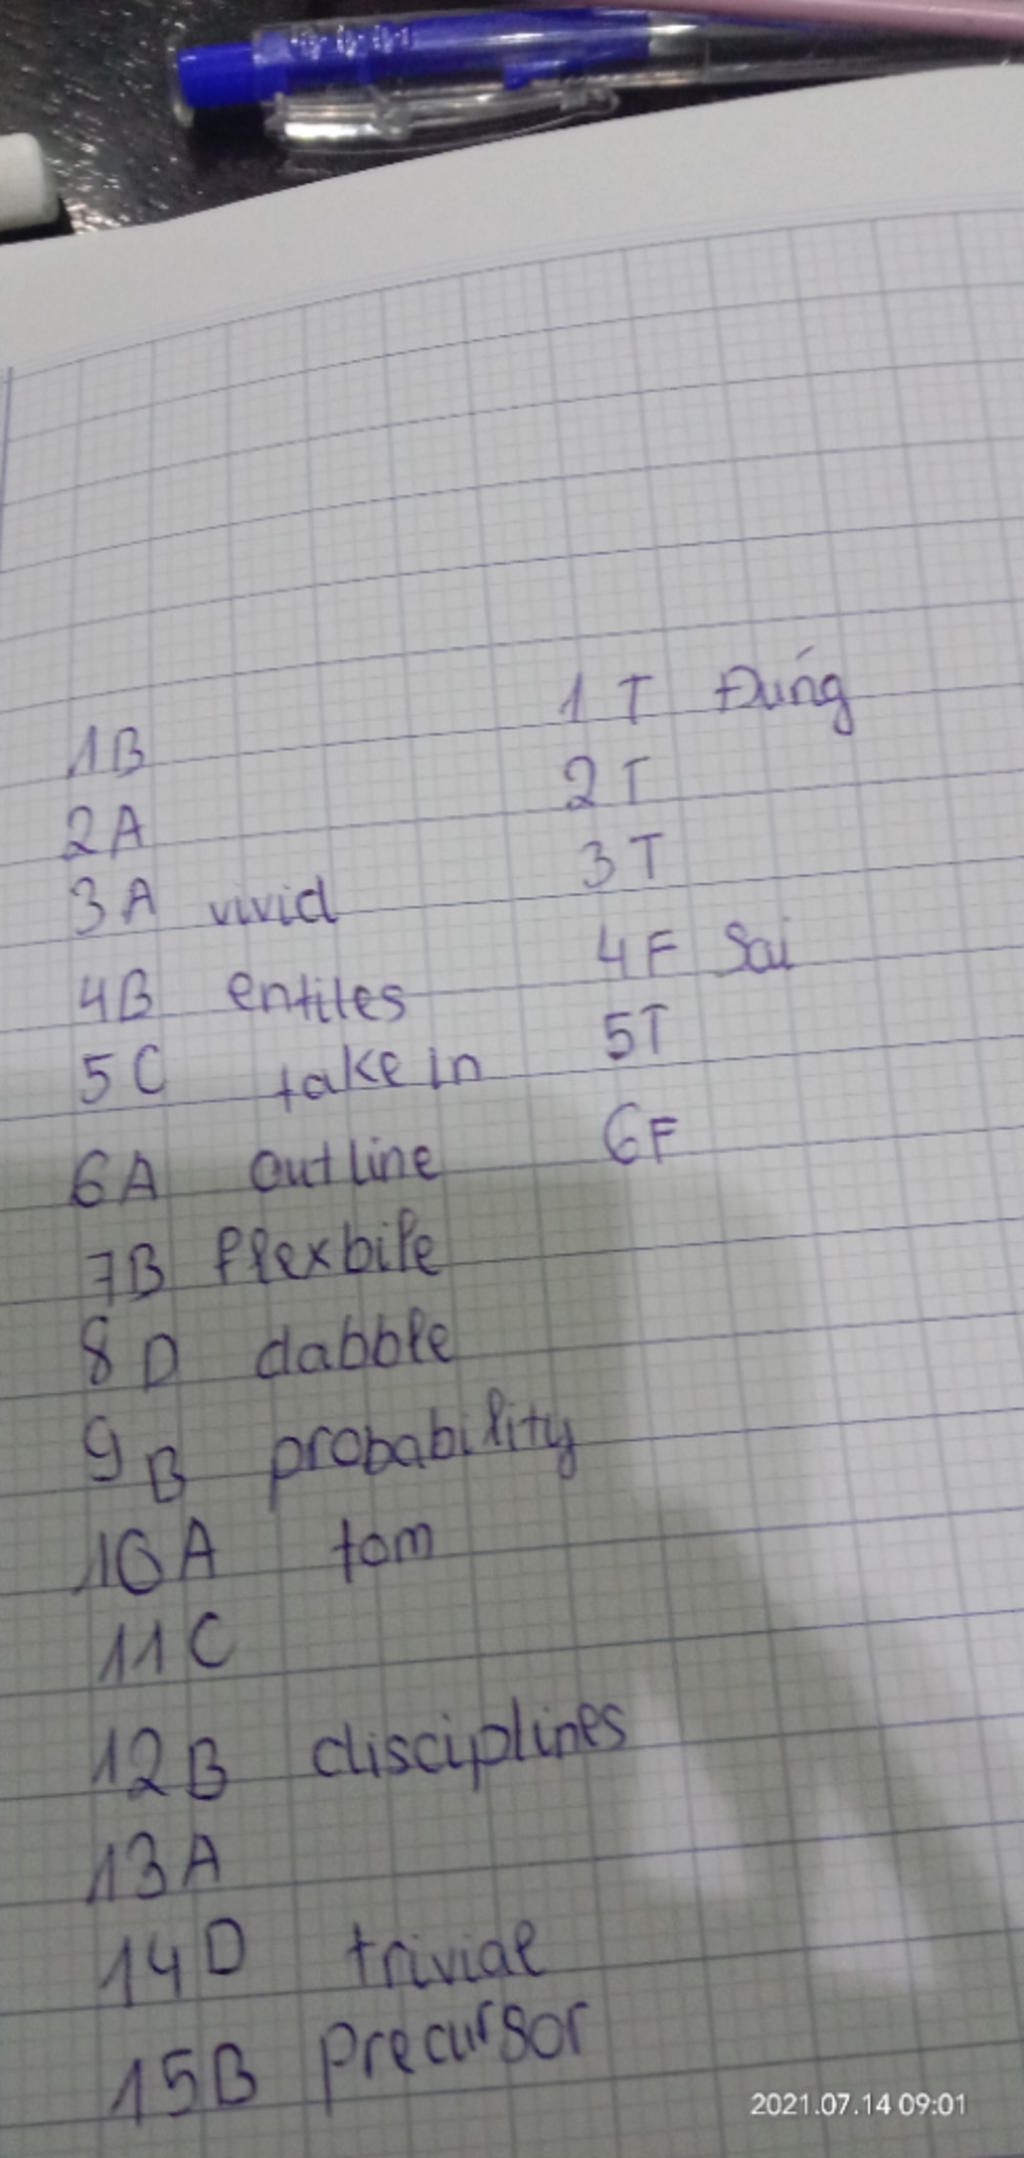 1B
2A
3A vivid
4B entiles
5C take in
6A outline
7B flexbile
8D dabble
9B probability
10A tom
11C
12B disciplines
13A
14D trivial
15B precursor
1 T Đúng
2 T
3 T
4 F Sai
5 T
6 F
2021.07.14 09:01